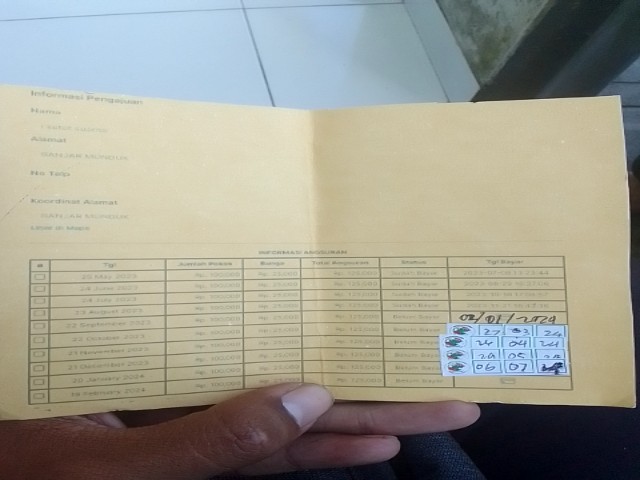 Informasi Pengajuan
Nama
Alamat
BANJAR MUNDUK
No Telp
Koordinat Alamat
BANJAR MUNDUK
INFORMASI ANGSURAN
# Tgl Jumlah Pokok Bunga Total Angsuran Status Tgl Bayar
25 May 2023 Rp. 100,000 Rp. 25,000 Rp. 125,000 Sudah Bayar
24 June 2023 Rp. 100,000 Rp. 25,000 Rp. 125,000 Sudah Bayar
24 July 2023 Rp. 100,000 Rp. 25,000 Rp. 125,000 Sudah Bayar
23 August 2023 Rp. 100,000 Rp. 25,000 Rp. 125,000 Sudah Bayar
22 September 2023 Rp. 100,000 Rp. 25,000 Rp. 125,000 Belum Bayar 02/01/2024
22 October 2023 Rp. 100,000 Rp. 25,000 Rp. 125,000 Belum Bayar 27 03 24
21 November 2023 Rp. 100,000 Rp. 25,000 Rp. 125,000 Belum Bayar 24 04 24
21 December 2023 Rp. 100,000 Rp. 25,000 Rp. 125,000 Belum Bayar 20 05 24
20 January 2024 Rp. 100,000 Rp. 25,000 Rp. 125,000 Belum Bayar 06 07
19 February 2024 Rp. 100,000 Rp. 25,000 Rp. 125,000 Belum Bayar